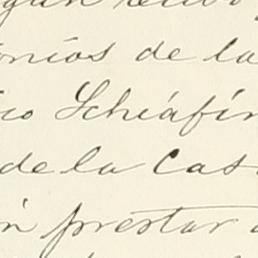 nios de la
Schiafin
de la Cas
n prestar a